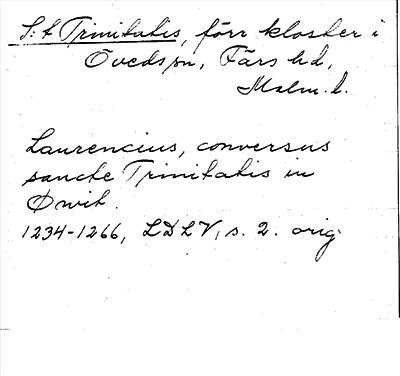 S:t Trinitatis, förr kloster i
Öveds sn, Färs hd,
Malm. l.
Laurencius, conversus
sancte Trinitatis in
Øwit.
1234-1266, LDLV, s. 2. orig.